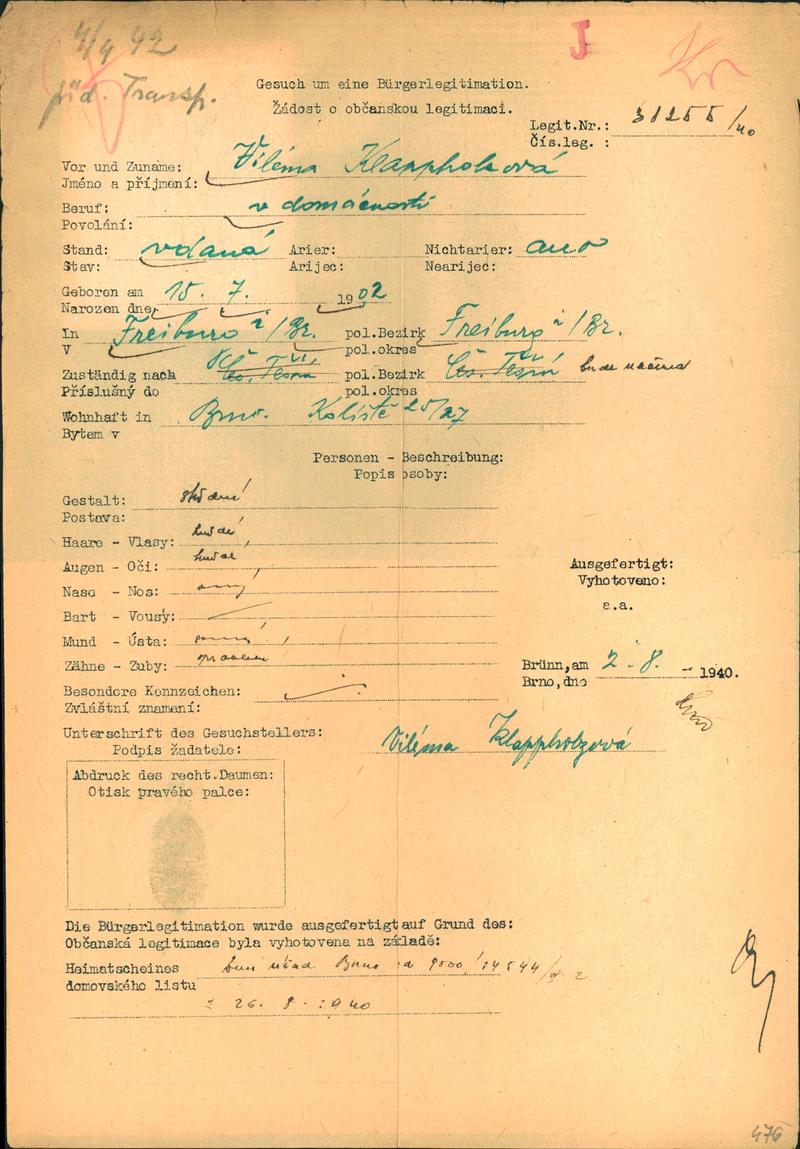 4/4 42
J
příd. Transp.
Gesuch um eine Bürgerlegitimation.
Žádost o občanskou legitimaci.
Legit.Nr.: 31255/40
Čís.leg. :
Vor und Zuname: Viléma Klappholzová
Jméno a příjmení:
Beruf: v domácnosti
Povolání:
Stand: vdaná Arier: Nichtarier: ano
Stav: Arijec: Nearijec:
Geboren am 15. 7. 1902
Narozen dne
In Freiburg i/Br. pol.Bezirk Freiburg i/Br.
V pol.okres
Zuständig nach Čes. Těšín pol.Bezirk Čes. Těšín
Příslušný do pol.okres
Wohnhaft in Brno. Koliště 25/27
Bytem v
Personen - Beschreibung:
Popis osoby:
Gestalt: střední
Postava:
Haare - Vlasy: hnědé
Augen - Oči: hnědé
Ausgefertigt:
Vyhotoveno:
Nase - Nos:
s.a.
Bart - Vousy:
Mund - Ústa:
Zähne - Zuby:
Brünn,am 2. 8. 1940.
Brno,dne
Besondere Kennzeichen:
Zvláštní znamení:
Unterschrift des Gesuchstellers:
Podpis žadatele: Viléma Klappholzová
Abdruck des recht.Daumen:
Otisk pravého palce:
Die Bürgerlegitimation wurde ausgefertigt auf Grund des:
Občanská legitimace byla vyhotovena na základě:
Heimatscheines Brno
domovského listu
26. 8. 1940
476